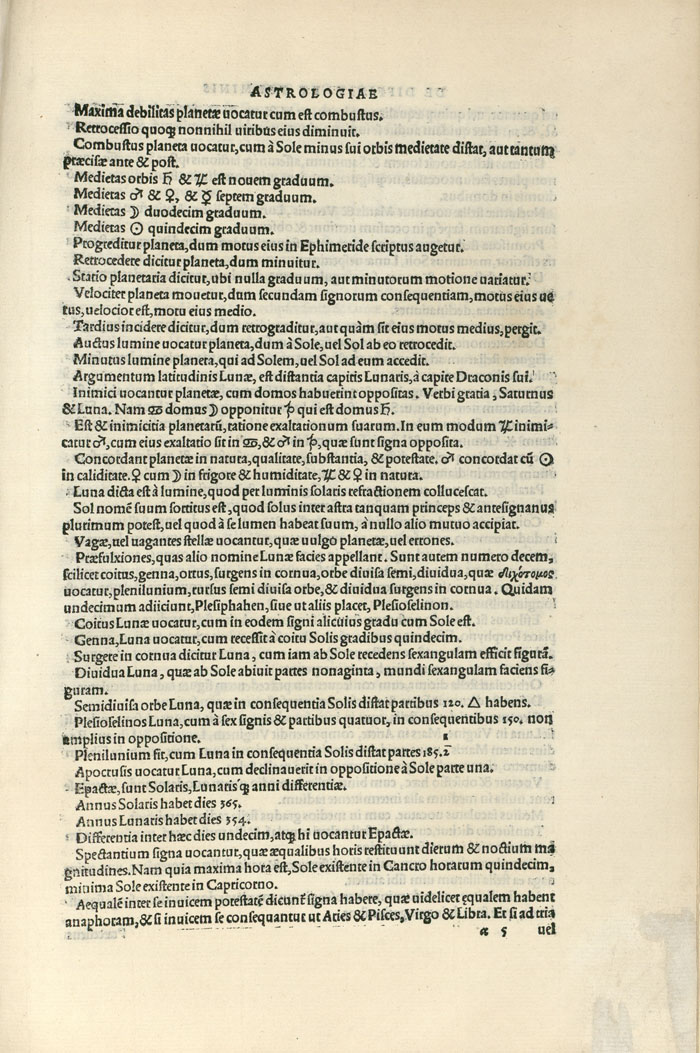 ASTROLOGIAE
Maxima debilitas planetæ uocatur cum est combustus.
Retrocessio quoqꝫ nonnihil uiribus eius diminuit.
Combustus planeta uocatur, cum à Sole minus sui orbis medietate distat, aut tantum
præcisæ ante & post.
Medietas orbis ♄ & ♃ est nouem graduum.
Medietas ♂ & ♀, & ☿ septem graduum.
Medietas ☽ duodecim graduum.
Medietas ☉ quindecim graduum.
Progreditur planeta, dum motus eius in Ephimeride scriptus augetur.
Retrocedere dicitur planeta, dum minuitur.
Statio planetaria dicitur, ubi nulla graduum, aut minutorum motione uariatur.
Velociter planeta mouetur, dum secundam signorum consequentiam, motus eius ue
rus, uelocior est, motu eius medio.
Tardius incidere dicitur, dum retrograditur, aut quàm sit eius motus medius, pergit.
Auctus lumine uocatur planeta, dum à Sole, uel Sol ab eo retrocedit.
Minutus lumine planeta, qui ad Solem, uel Sol ad eum accedit.
Argumentum latitudinis Lunæ, est distantia capitis Lunaris, à capite Draconis sui.
Inimici uocantur planetæ, cum domos habuerint oppositas. Verbi gratia, Saturnus
& Luna. Nam ♋ domus ☽ opponitur ♑ qui est domus ♄.
Est & inimicitia planetarū, ratione exaltationum suarum. In eum modum ♃ inimi-
catur ♂, cum eius exaltatio sit in ♋, & ♂ in ♑, quæ sunt signa opposita.
Concordant planetæ in natura, qualitate, substantia, & potestate. ♂ concordat cū ☉
in caliditate. ♀ cum ☽ in frigore & humiditate, ♃ & ♀ in natura.
Luna dicta est à lumine, quod per luminis solaris refractionem collucescat.
Sol nomē suum sortitus est, quod solus inter astra tanquam princeps & antesignanus
plurimum potest, uel quod à se lumen habeat suum, à nullo alio mutuo accipiat.
Vagæ, uel uagantes stellæ uocantur, quæ uulgo planetæ, uel errones.
Præfulxiones, quas alio nomine Lunæ facies appellant. Sunt autem numero decem,
scilicet coitus, genna, ortus, surgens in cornua, orbe diuisa semi, diuidua, quæ διχότομος
uocatur, plenilunium, rursus semi diuisa orbe, & diuidua surgens in cornua. Quidam
undecimum adiiciunt, Plesiphahen, siue ut aliis placet, Plesioselinon.
Coitus Lunæ uocatur, cum in eodem signi alicuius gradu cum Sole est.
Genna, Luna uocatur, cum recessit à coitu Solis gradibus quindecim.
Surgere in cornua dicitur Luna, cum iam ab Sole recedens sexangulam efficit figurā.
Diuidua Luna, quæ ab Sole abiuit partes nonaginta, mundi sexangulam faciens fi-
guram.
Semidiuisa orbe Luna, quæ in consequentia Solis distat partibus 120. △ habens.
Plesioselinos Luna, cum à sex signis & partibus quatuor, in consequentibus 150. non
amplius in oppositione.
Plenilunium fit, cum Luna in consequentia Solis distat partes 185. 1/2
Apocrusis uocatur Luna, cum declinauerit in oppositione à Sole parte una.
Epactæ, sunt Solaris, Lunarisqꝫ anni differentiæ.
Annus Solaris habet dies 365.
Annus Lunaris habet dies 354.
Differentia inter hæc dies undecim, atqꝫ hi uocantur Epactæ.
Spectantium signa uocantur, quæ æqualibus horis restituunt dierum & noctium ma
gnitudines. Nam quia maxima hora est, Sole existente in Cancro horarum quindecim,
minima Sole existente in Capricorno.
Aequalē inter se inuicem potestatē dicunt̃ signa habere, quæ uidelicet ęqualem habent
anaphoram, & si inuicem se consequantur ut Aries & Pisces, Virgo & Libra. Et si ad tria
α 5 uel